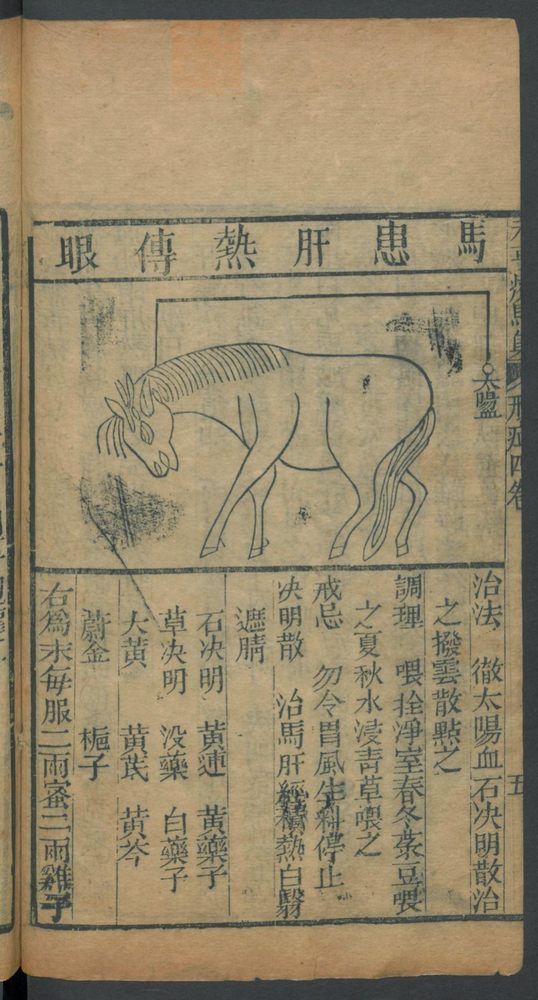 馬患肝熱傳眼
太陽盆
治法 徹太陽血石決明散治
之撥雲散點之
調理 喂拴淨室春冬菉豆喂
之夏秋水浸青草喂之
戒忌 勿令冒風生料停止
决明散 治馬肝經積熱白翳
遮睛
石决明 黃連 黃藥子
草决明 没藥 白藥子
大黃 黃芪 黃芩
蔚金 梔子
右爲末每服二兩蜜二兩雞子
五